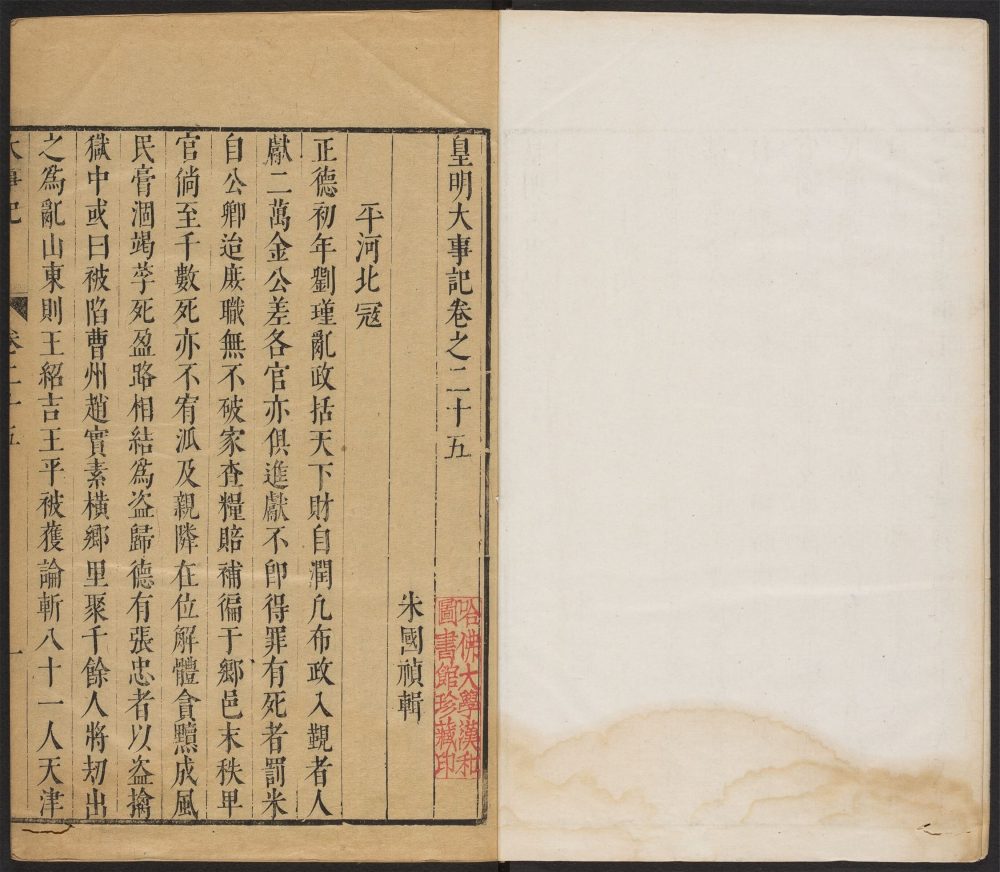 皇明大事記卷之二十五
朱國禎輯
平河北寇
正德初年劉瑾亂政括天下財自潤凡布政入覲者人
獻二萬金公差各官亦俱進獻不即得罪有死者罰米
自公卿迨庶職無不破家查糧賠補徧于鄉邑末秩卑
官倘至千數死亦不宥泒及親隣在位解體貪黷成風
民膏涸竭莩死盈路相結爲盜歸德有張忠者以盜擒
獄中或曰被陷曹州趙實素橫鄉里聚千餘人將刼出
之爲亂山東則王紹吉王平被獲論斬八十一人天津
大事記 卷二十五 一
哈佛大學漢和
圖書館珍藏印